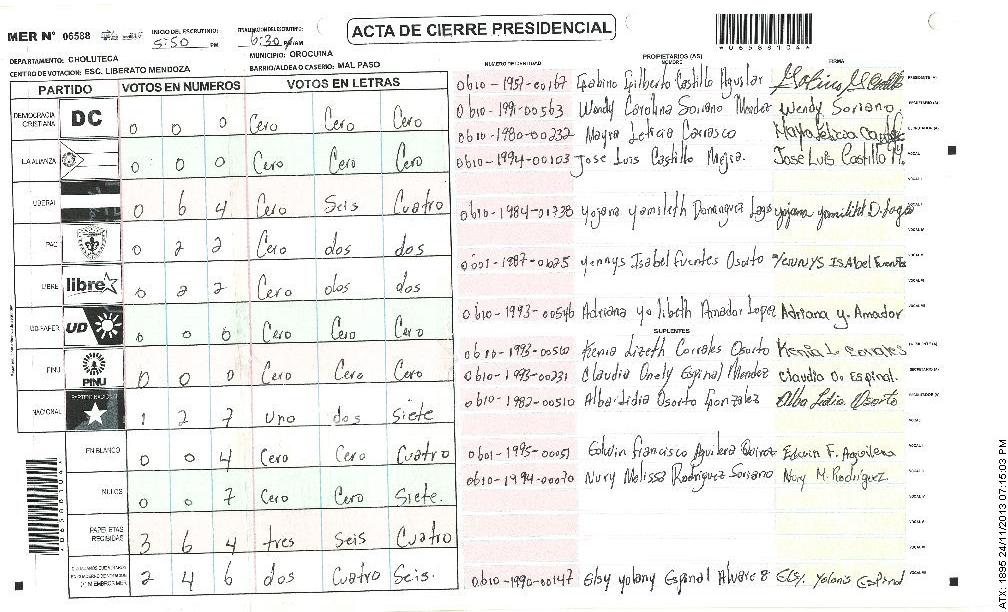 MER N° 06588
INICIO DEL ESCRUTINIO: 5:50 PM
6:30 PM
ACTA DE CIERRE PRESIDENCIAL
DEPARTAMENTO: CHOLUTECA
MUNICIPIO: OROCUINA
CENTRO DE VOTACION: ESC. LIBERATO MENDOZA
BARRIO/ALDEA O CASERIO: MAL PASO
PARTIDO VOTOS EN NUMEROS VOTOS EN LETRAS
DEMOCRACIA CRISTIANA DC 0 0 0 Cero Cero Cero
LA ALIANZA 0 0 0 Cero Cero Cero
LIBERAL 0 6 4 Cero Seis Cuatro
PAC 0 2 2 Cero dos dos
LIBRE libre 0 2 2 Cero dos dos
UD-FAPER UD 0 0 0 Cero Cero Cero
PINU PINU 0 0 0 Cero Cero Cero
NACIONAL 1 2 7 uno dos Siete
EN BLANCO 0 0 4 Cero Cero Cuatro
NULOS 0 0 7 Cero Cero Siete.
PAPELETAS RECIBIDAS 3 6 4 tres Seis Cuatro
2 4 6 dos Cuatro Seis.
NUMERO DE IDENTIDAD PROPIETARIOS (AS) NOMBRE FIRMA
0610-1957-00167 Gabino Gilberto Castillo Aguilar
0610-1991-00563 Wendy Carolina Soriano Mendez Wendy Soriano
0610-1980-00232 Mayra Leticia Carrasco
0610-1994-00103 Jose Luis Castillo Mejia. Jose Luis Castillo M.
0610-1984-01738 yojana yamileth Dominguez Lagos
0601-1987-01025 yennys Isabel Fuentes Osorto YENNYS ISAbel Fuentes
0610-1993-00546 Adriana yolibeth Amador Lopez Adriana y. Amador
SUPLENTES
0610-1993-00560 Kenia Lizeth Corrales Osorto Kenia L Corrales
0610-1993-00231 Claudia Onely Espinal Mendez Claudia O. Espinal.
0610-1982-00510 Alba Lidia Osorto Gonzalez Alba Lidia Osorto
0601-1995-00051 Edwin Francisco Aguilera Edwin F. Aguilera
0610-1994-00070 Nury Melissa Rodriguez Soriano Nury M. Rodriguez
0610-1990-00147 Elsy yolany Espinal
ATX: 1895 24/11/2013 07:15:03 PM